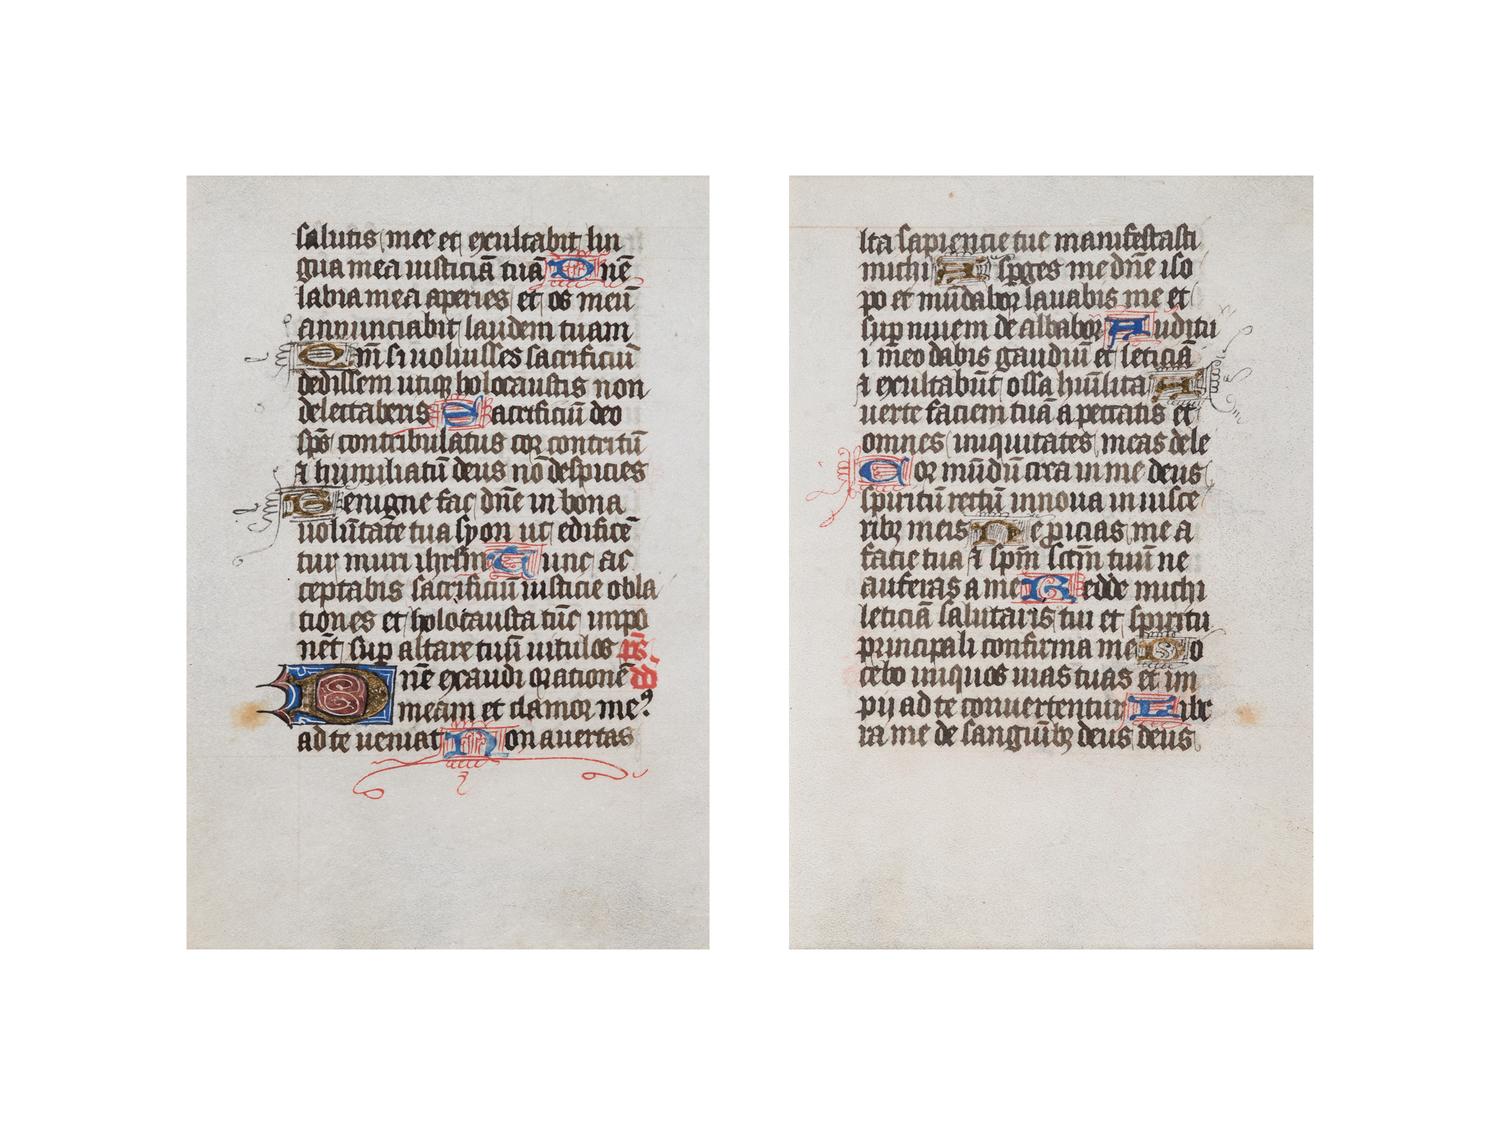 salutis mee et exultabit lin
gua mea iusticiā tuā Dne᷑
labia mea aperies et os meū
annunciabit laudem tuam
Qm̄ si uoluisses sacrificiū
dedissem utiqꝫ holocaustis non
delectaberis Sacrificiū deo
sp̄s contribulatus cor contritū
⁊ humiliatū deus nō despicies
Benigne fac dn̄e in bona
uolūtate tua syon ut edificē
tur muri ihrl̄m Tunc ac
ceptabis sacrificiū iusticie obla
tiones et holocausta tūc impo
nēt sup altare tuū uitulos
Dn̄e exaudi orationē
meam et clamor meꝰ
ad te ueniat Non auertas
lta sapiencie tue manifestasti
michi Asp̱ges me dn̄e iso
po et mūdabor lauabis me et
sup niuem de albabor Auditu
i meo dabis gaudiū et leticiā
⁊ exultabūt ossa hūilita A
uerte faciem tuā a peccatis et
omnes iniquitates meas dele
Cor mūdū crea in me deus
spiritū rectū innoua in uisce
ribꝫ meis Ne ꝓicias me a
facie tua ⁊ sp̄m sctm̄ tuū ne
auferas a me Redde michi
leticiā salutaris tui et spiritu
principali confirma me Do
cebo iniquos uias tuas et im
pij ad te conuertentur Libe
ra me de sanguibꝫ deus deus